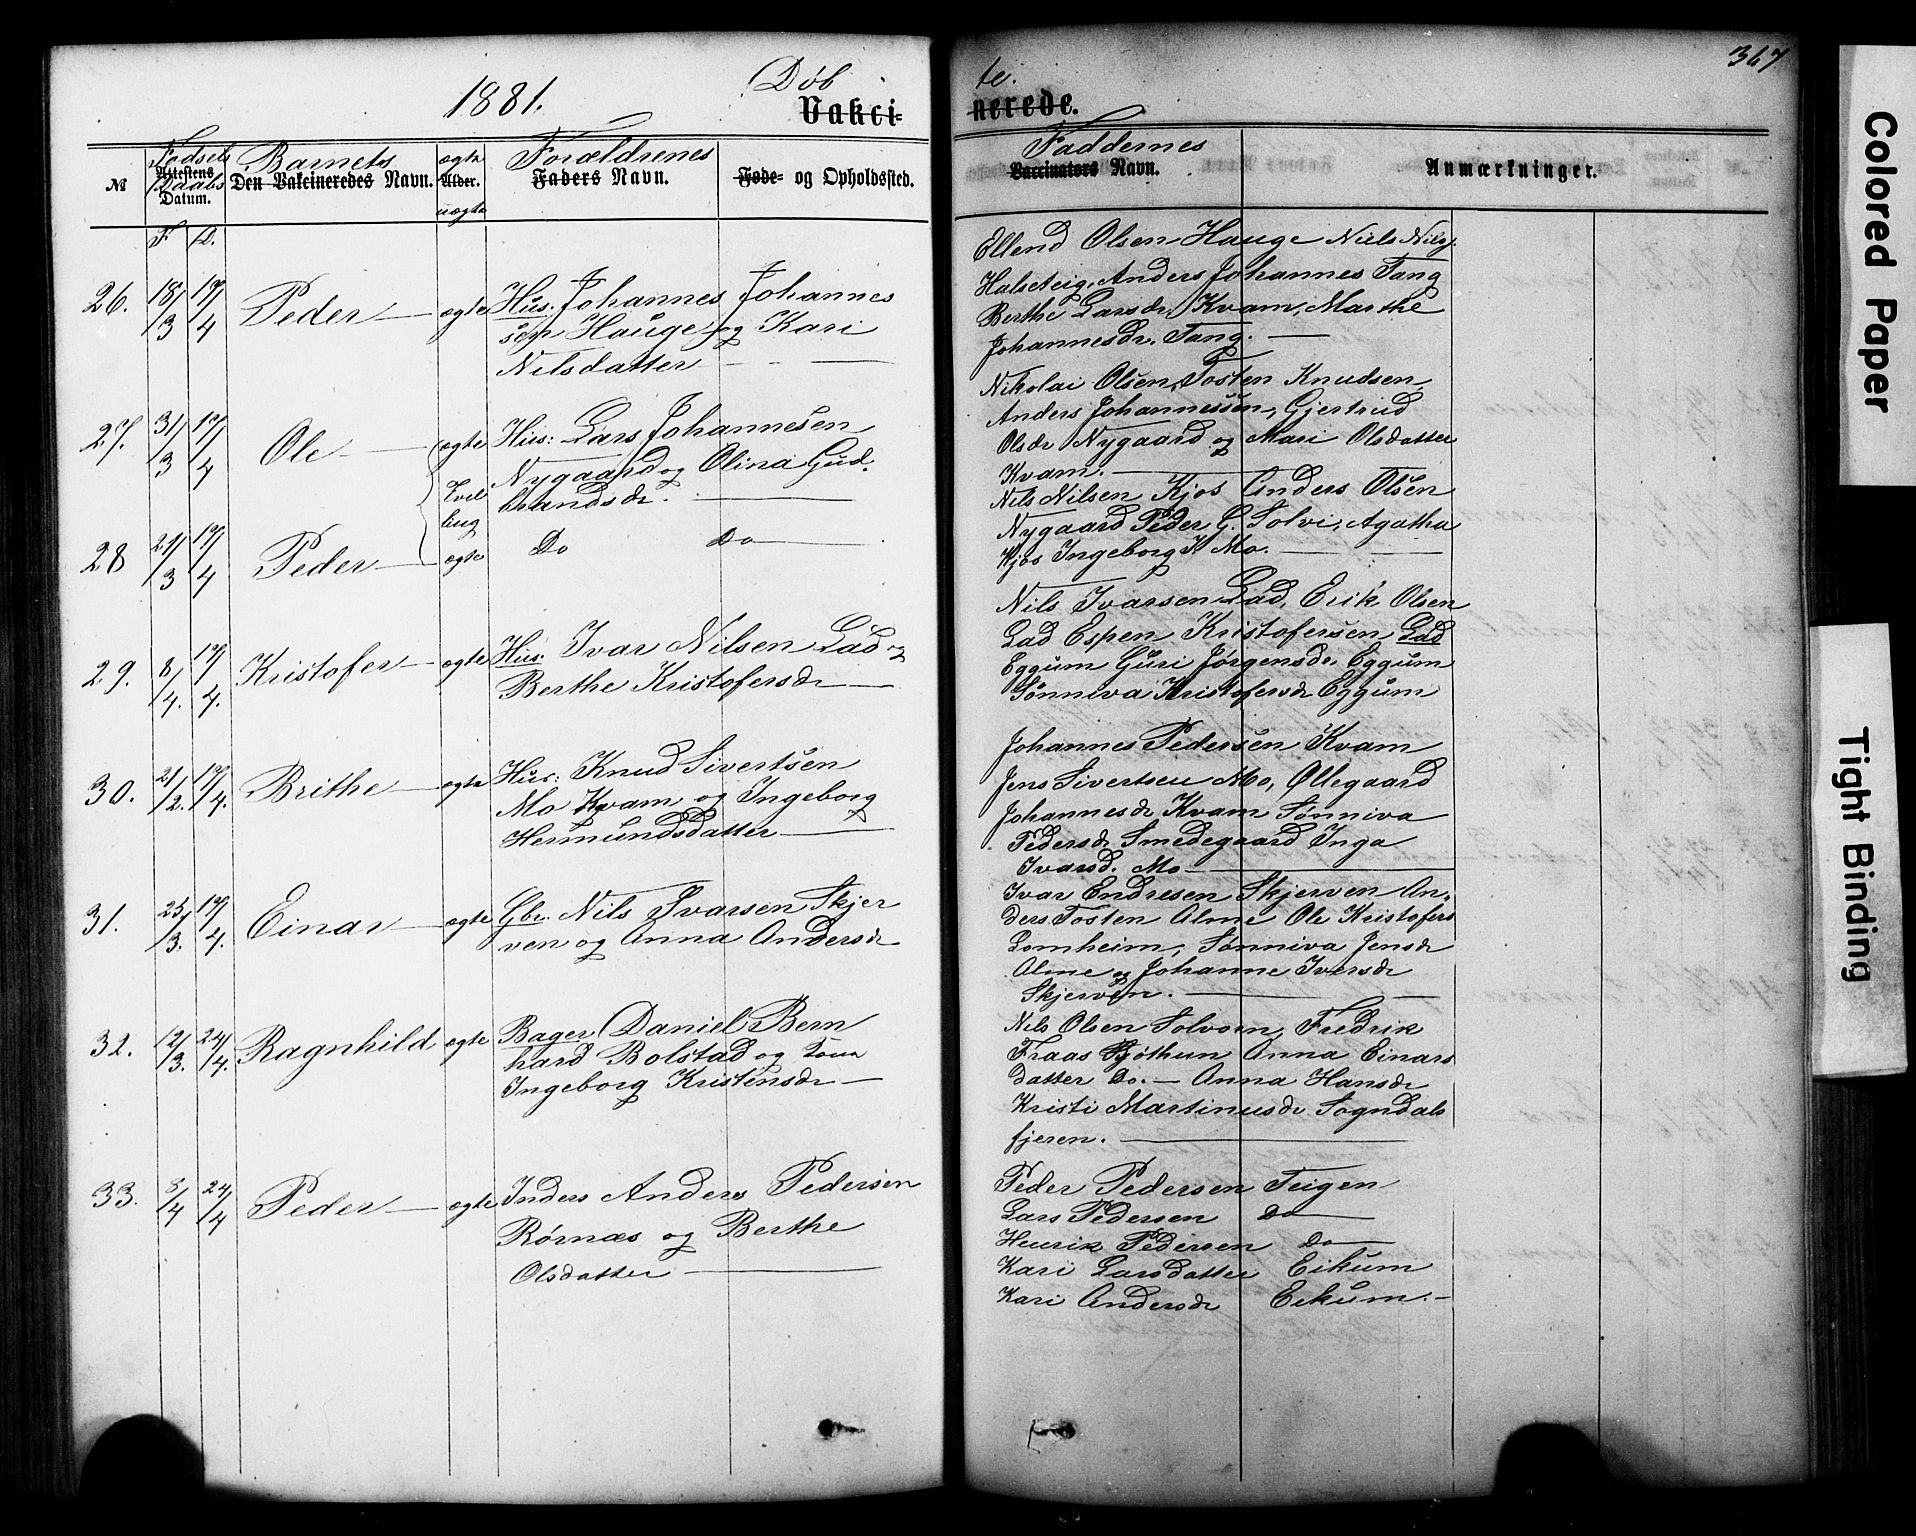 1881.
Døb
te.
367
Vakci-
nerede.
№
Fødsels
Attestens
Daabs
Datum.
Barnets
Den Vakcineredes Navn.
ægte
Alder.
uægte
Forældrenes
Faders Navn.
Føde- og Opholdssted.
Faddernes
Vaccinators Navn.
Anmærkninger.
F D.
26. 18/3 17/4 Peder — ægte Hus. Johannes Johannes
sen Hauge og Kari
Nilsdatter —
Ellend Olsen Hauge Niels Nils.
Halseteig, Anders Johannes Tang
Berthe Larsdr. Kvam, Marthe
Johannesdr. Tang. —
27. 31/3 17/4 Ole — ægte Hus: Lars Johannesen
Nygaard og Olina Gud-
brandsdr. —
Tvil
ling
Nikolai Olsen, Tosten Knudsen
Anders Johannessen, Gjertrud
Olsdr Nygaard og Mari Olsdatter
Kvam. —
28 21/3 17/4 Peder — ægte Do Do —
Nils Nilsen Kjos Anders Olsen
Nygaard Peder G. Solvi, Agatha
Kjos Ingeborg K. Mo. —
29. 8/4. 17/4. Kristofer — ægte Hus: Ivar Nilsen Lad og
Berthe Kristofersdr —
Nils Ivarsen Lad, Erik Olsen
Lad Espen Kristofersen Lad
Eggum Guri Jørgensdr. Eggum
Sønniva Kristofersdr Eggum
30. 21/2. 17/4. Brithe — ægte Hus: Knud Sivertsen
Mo Kvam og Ingeborg
Hermundsdatter —
Johannes Pedersen Kvam
Jens Sivertsen Mo, Øllegaard
Johannesdr Kvam Sønniva
Pedersdr Smedegaard Inga
Ivarsd. Mo —
31. 23/3. 17/4. Einar — ægte Gbr. Nils Ivarsen Skjer
ven og Anna Andersdr
Ivar Endresen Skjerven An-
ders Tosten Alme Ole Kristofers
Lomheim, Sønniva Jensdr
Alme og Johanne Iversdr
Skjerven. —
32. 12/3. 24/4. Ragnhild ægte Bager Daniel Bern
hard Bolstad og Kona
Ingeborg Kristensdr —
Nils Olsen Solvorn, Fredrik
Fraas Bjøthun Anna Einars
datter Do. — Anna Hansdr
Kristi Martinusdr Sogndals
fjeren. —
33. 8/4 24/4 Peder — ægte Inders Anders Pedersen
Rørnæs og Berthe
Olsdatter —
Peder Pedersen Teigen
Lars Pedersen Do —
Henrik Pedersen Do —
Kari Larsdatter Eikum
Kari Andersdr Eikum. —
Colored Paper
Tight Binding